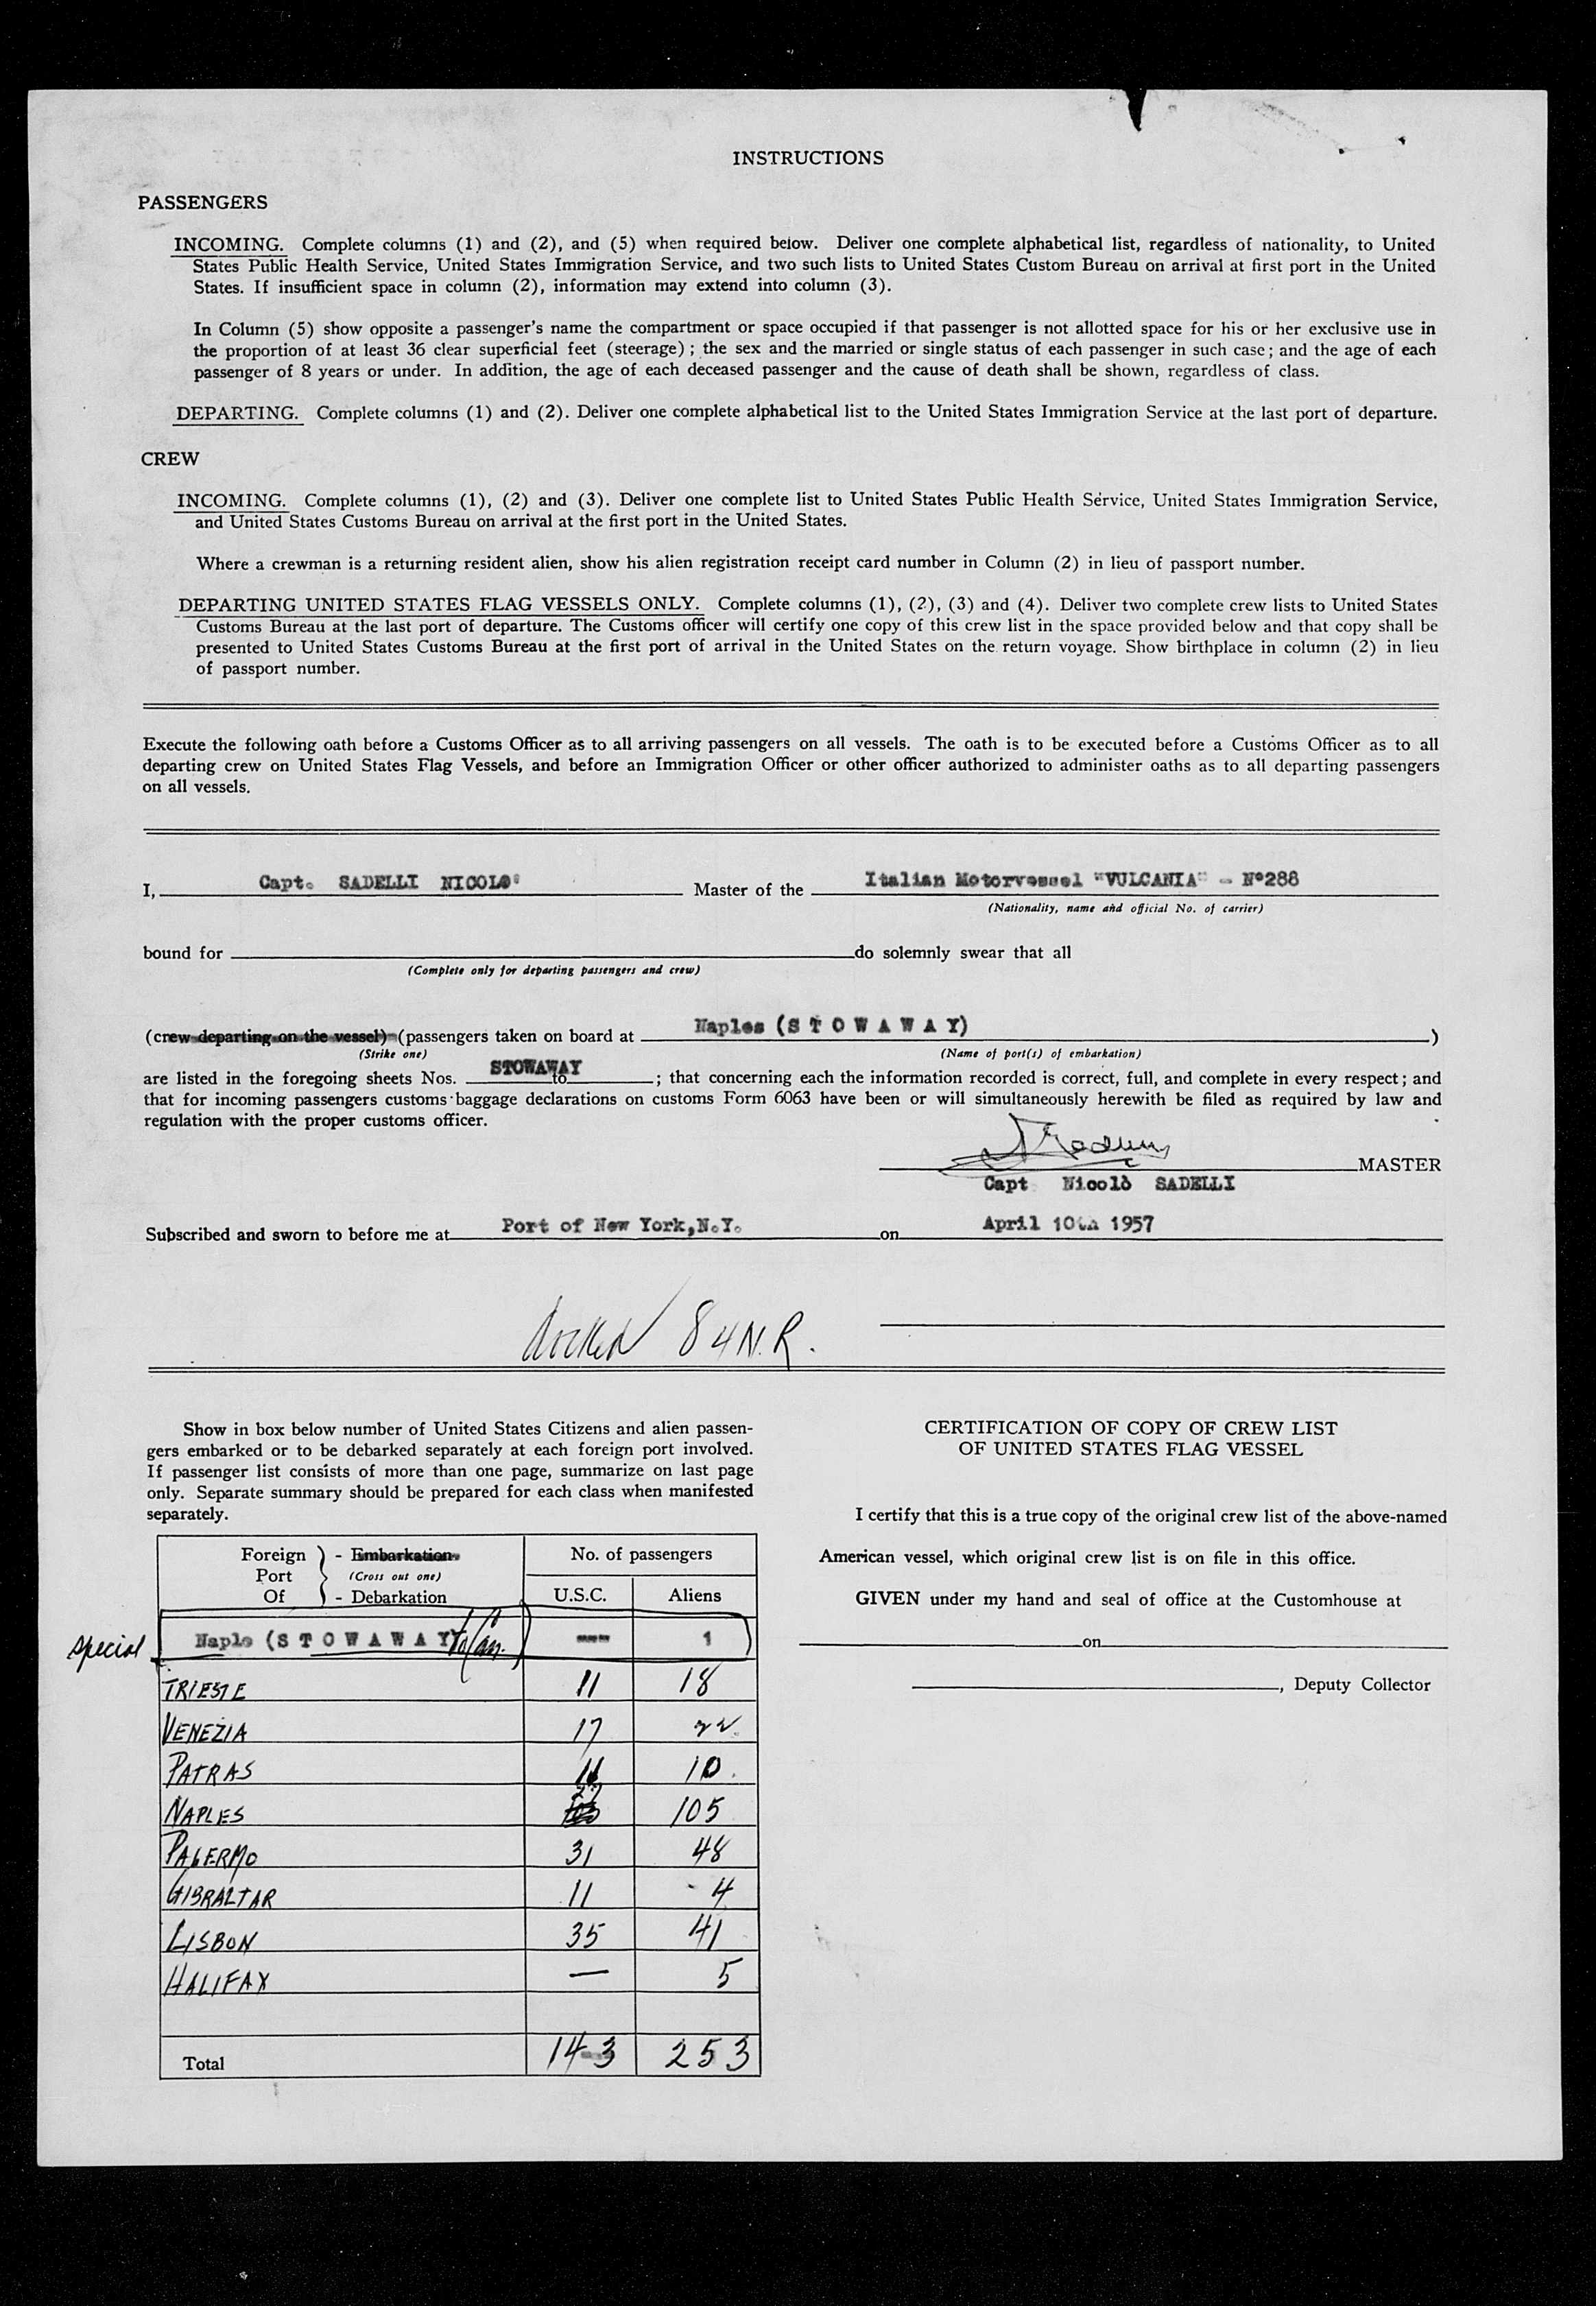 INSTRUCTIONS
PASSENGERS
INCOMING. Complete columns (1) and (2), and (5) when required below. Deliver one complete alphabetical list, regardless of nationality, to United
States Public Health Service, United States Immigration Service, and two such lists to United States Custom Bureau on arrival at first port in the United
States. If insufficient space in column (2), information may extend into column (3).
In Column (5) show opposite a passenger's name the compartment or space occupied if that passenger is not allotted space for his or her exclusive use in
the proportion of at least 36 clear superficial feet (steerage); the sex and the married or single status of each passenger in such case; and the age of each
passenger of 8 years or under. In addition, the age of each deceased passenger and the cause of death shall be shown, regardless of class.
DEPARTING. Complete columns (1) and (2). Deliver one complete alphabetical list to the United States Immigration Service at the last port of departure.
CREW
INCOMING. Complete columns (1), (2) and (3). Deliver one complete list to United States Public Health Service, United States Immigration Service,
and United States Customs Bureau on arrival at the first port in the United States.
Where a crewman is a returning resident alien, show his alien registration receipt card number in Column (2) in lieu of passport number.
DEPARTING UNITED STATES FLAG VESSELS ONLY. Complete columns (1), (2), (3) and (4). Deliver two complete crew lists to United States
Customs Bureau at the last port of departure. The Customs officer will certify one copy of this crew list in the space provided below and that copy shall be
presented to United States Customs Bureau at the first port of arrival in the United States on the return voyage. Show birthplace in column (2) in lieu
of passport number.
Execute the following oath before a Customs Officer as to all arriving passengers on all vessels. The oath is to be executed before a Customs Officer as to all
departing crew on United States Flag Vessels, and before an Immigration Officer or other officer authorized to administer oaths as to all departing passengers
on all vessels.
I, Capt. SADELLI NICOLO' Master of the Italian Motorvessel "VULCANIA" - N°288
(Nationality, name and official No. of carrier)
bound for do solemnly swear that all
(Complete only for departing passengers and crew)
(crew departing on the vessel) (passengers taken on board at Naples (S T O W A W A Y) )
(Strike one) (Name of port(s) of embarkation)
are listed in the foregoing sheets Nos. STOWAWAY to ; that concerning each the information recorded is correct, full, and complete in every respect; and
that for incoming passengers customs baggage declarations on customs Form 6063 have been or will simultaneously herewith be filed as required by law and
regulation with the proper customs officer.
MASTER
Capt Nicolò SADELLI
Subscribed and sworn to before me at Port of New York, N.Y. on April 10th 1957
docked 84 N.R.
Show in box below number of United States Citizens and alien passen-
gers embarked or to be debarked separately at each foreign port involved.
If passenger list consists of more than one page, summarize on last page
only. Separate summary should be prepared for each class when manifested
separately.
Foreign Port Of - Embarkation (Cross out one) - Debarkation
No. of passengers
U.S.C. Aliens
special Naple (S T O W A W A Y) --- 1
TRIESTE 11 18
VENEZIA 17 22
PATRAS 11 10
NAPLES 27 105
PALERMO 31 48
GIBRALTAR 11 4
LISBON 35 41
HALIFAX — 5
Total 143 253
CERTIFICATION OF COPY OF CREW LIST
OF UNITED STATES FLAG VESSEL
I certify that this is a true copy of the original crew list of the above-named
American vessel, which original crew list is on file in this office.
GIVEN under my hand and seal of office at the Customhouse at
on
, Deputy Collector